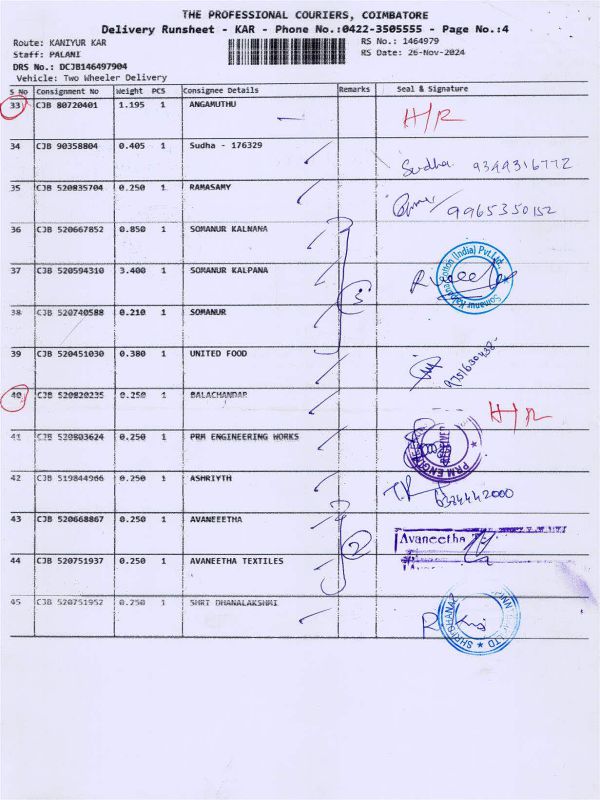 THE PROFESSIONAL COURIERS, COIMBATORE
Delivery Runsheet - KAR - Phone No.:0422-3505555 - Page No.:4
Route: KANIYUR KAR RS No.: 1464979
Staff: PALANI RS Date: 26-Nov-2024
DRS No.: DCJB146497904
Vehicle: Two Wheeler Delivery
S No Consignment No Weight PCS Consignee Details Remarks Seal & Signature
33 CJB 80720401 1.195 1 ANGAMUTHU H/R
34 CJB 90358804 0.405 1 Sudha - 176329 Sudha 9344316772
35 CJB 520835704 0.250 1 RAMASAMY 9965350152
36 CJB 520667852 0.850 1 SOMANUR KALNANA
37 CJB 520594310 3.400 1 SOMANUR KALPANA 3 Somanur Kalpana Cotton (India) Pvt.Ltd.
38 CJB 520740588 0.210 1 SOMANUR
39 CJB 520451030 0.380 1 UNITED FOOD
40 CJB 520820235 0.250 1 BALACHANDAR H/R
41 CJB 520803624 0.250 1 PRM ENGINEERING WORKS RECEIVED PRM
42 CJB 519844966 0.250 1 ASHRIYTH
43 CJB 520668867 0.250 1 AVANEEETHA 2 Avaneetha
44 CJB 520751937 0.250 1 AVANEETHA TEXTILES
45 CJB 520751952 0.250 1 SHRI DHANALAKSHMI LTD